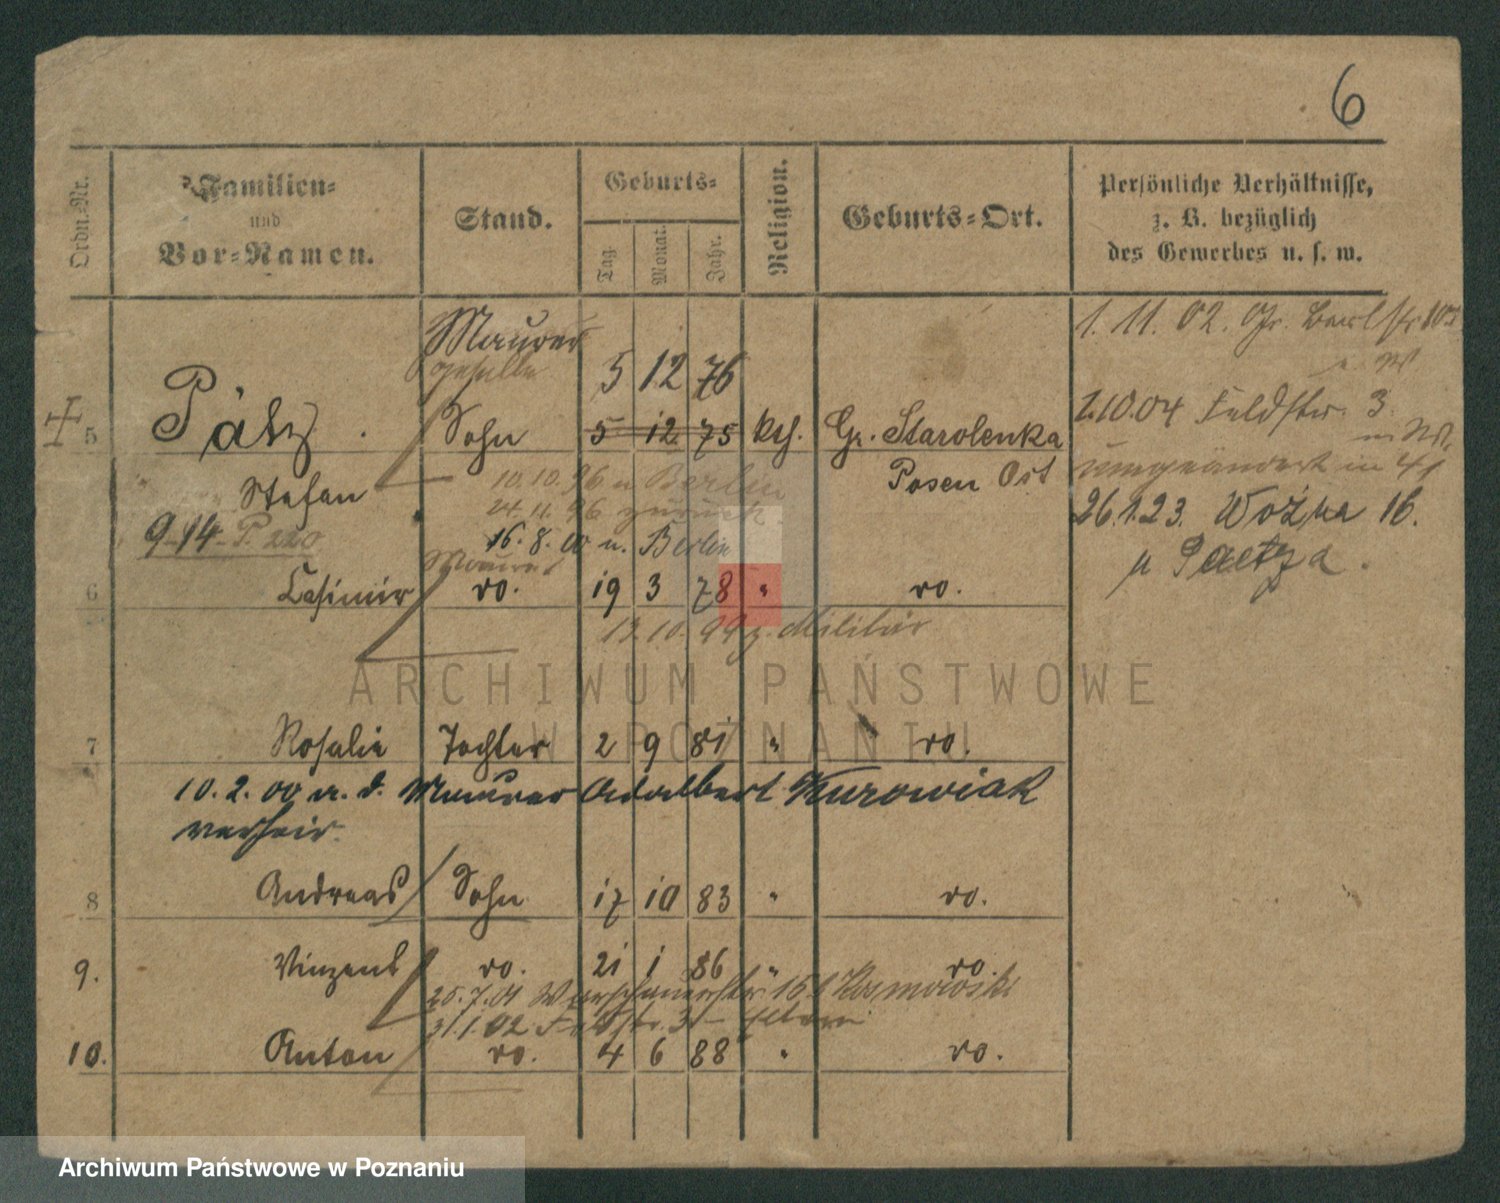 6
Ordn.-Nr.
Familien-
und
Vor-Namen.
Stand.
Geburts-
Tag.
Monat.
Jahr.
Religion.
Geburts-Ort.
Persönliche Verhältnisse,
z. B. bezüglich
des Gewerbes u. s. w.
Maurer
geselle
5 12 76
5 Pätz. Sohn 5 12 75 kth. Gr. Starolenka
Posen Ost
Stefan
10.10.96 n Berlin
24.11.96 zurück
9-14 P 220
16.8.00 n. Berlin
Maurer
6 Casimir do. 19 3 78 " do.
13.10.99 z. Militär
7 Rosalie Tochter 2 9 81 " do.
10.2.00 m. d. Maurer Adalbert Kurowiak
verheir.
8 Andreas Sohn 17 10 83 " do.
9. Vinzent do. 21 1 86 " do.
25.7.01 Warschauerstr. 15
31.1.02 Feldstr. 3 Eltern
10. Anton do. 4 6 88 " do.
1. 11. 02. Gr.
1.10.04 Feldstr. 3
umgeändert in 41
26.1.23. Woźna 16.
Paetza.
ARCHIWUM PAŃSTWOWE
W POZNANIU
Archiwum Państwowe w Poznaniu